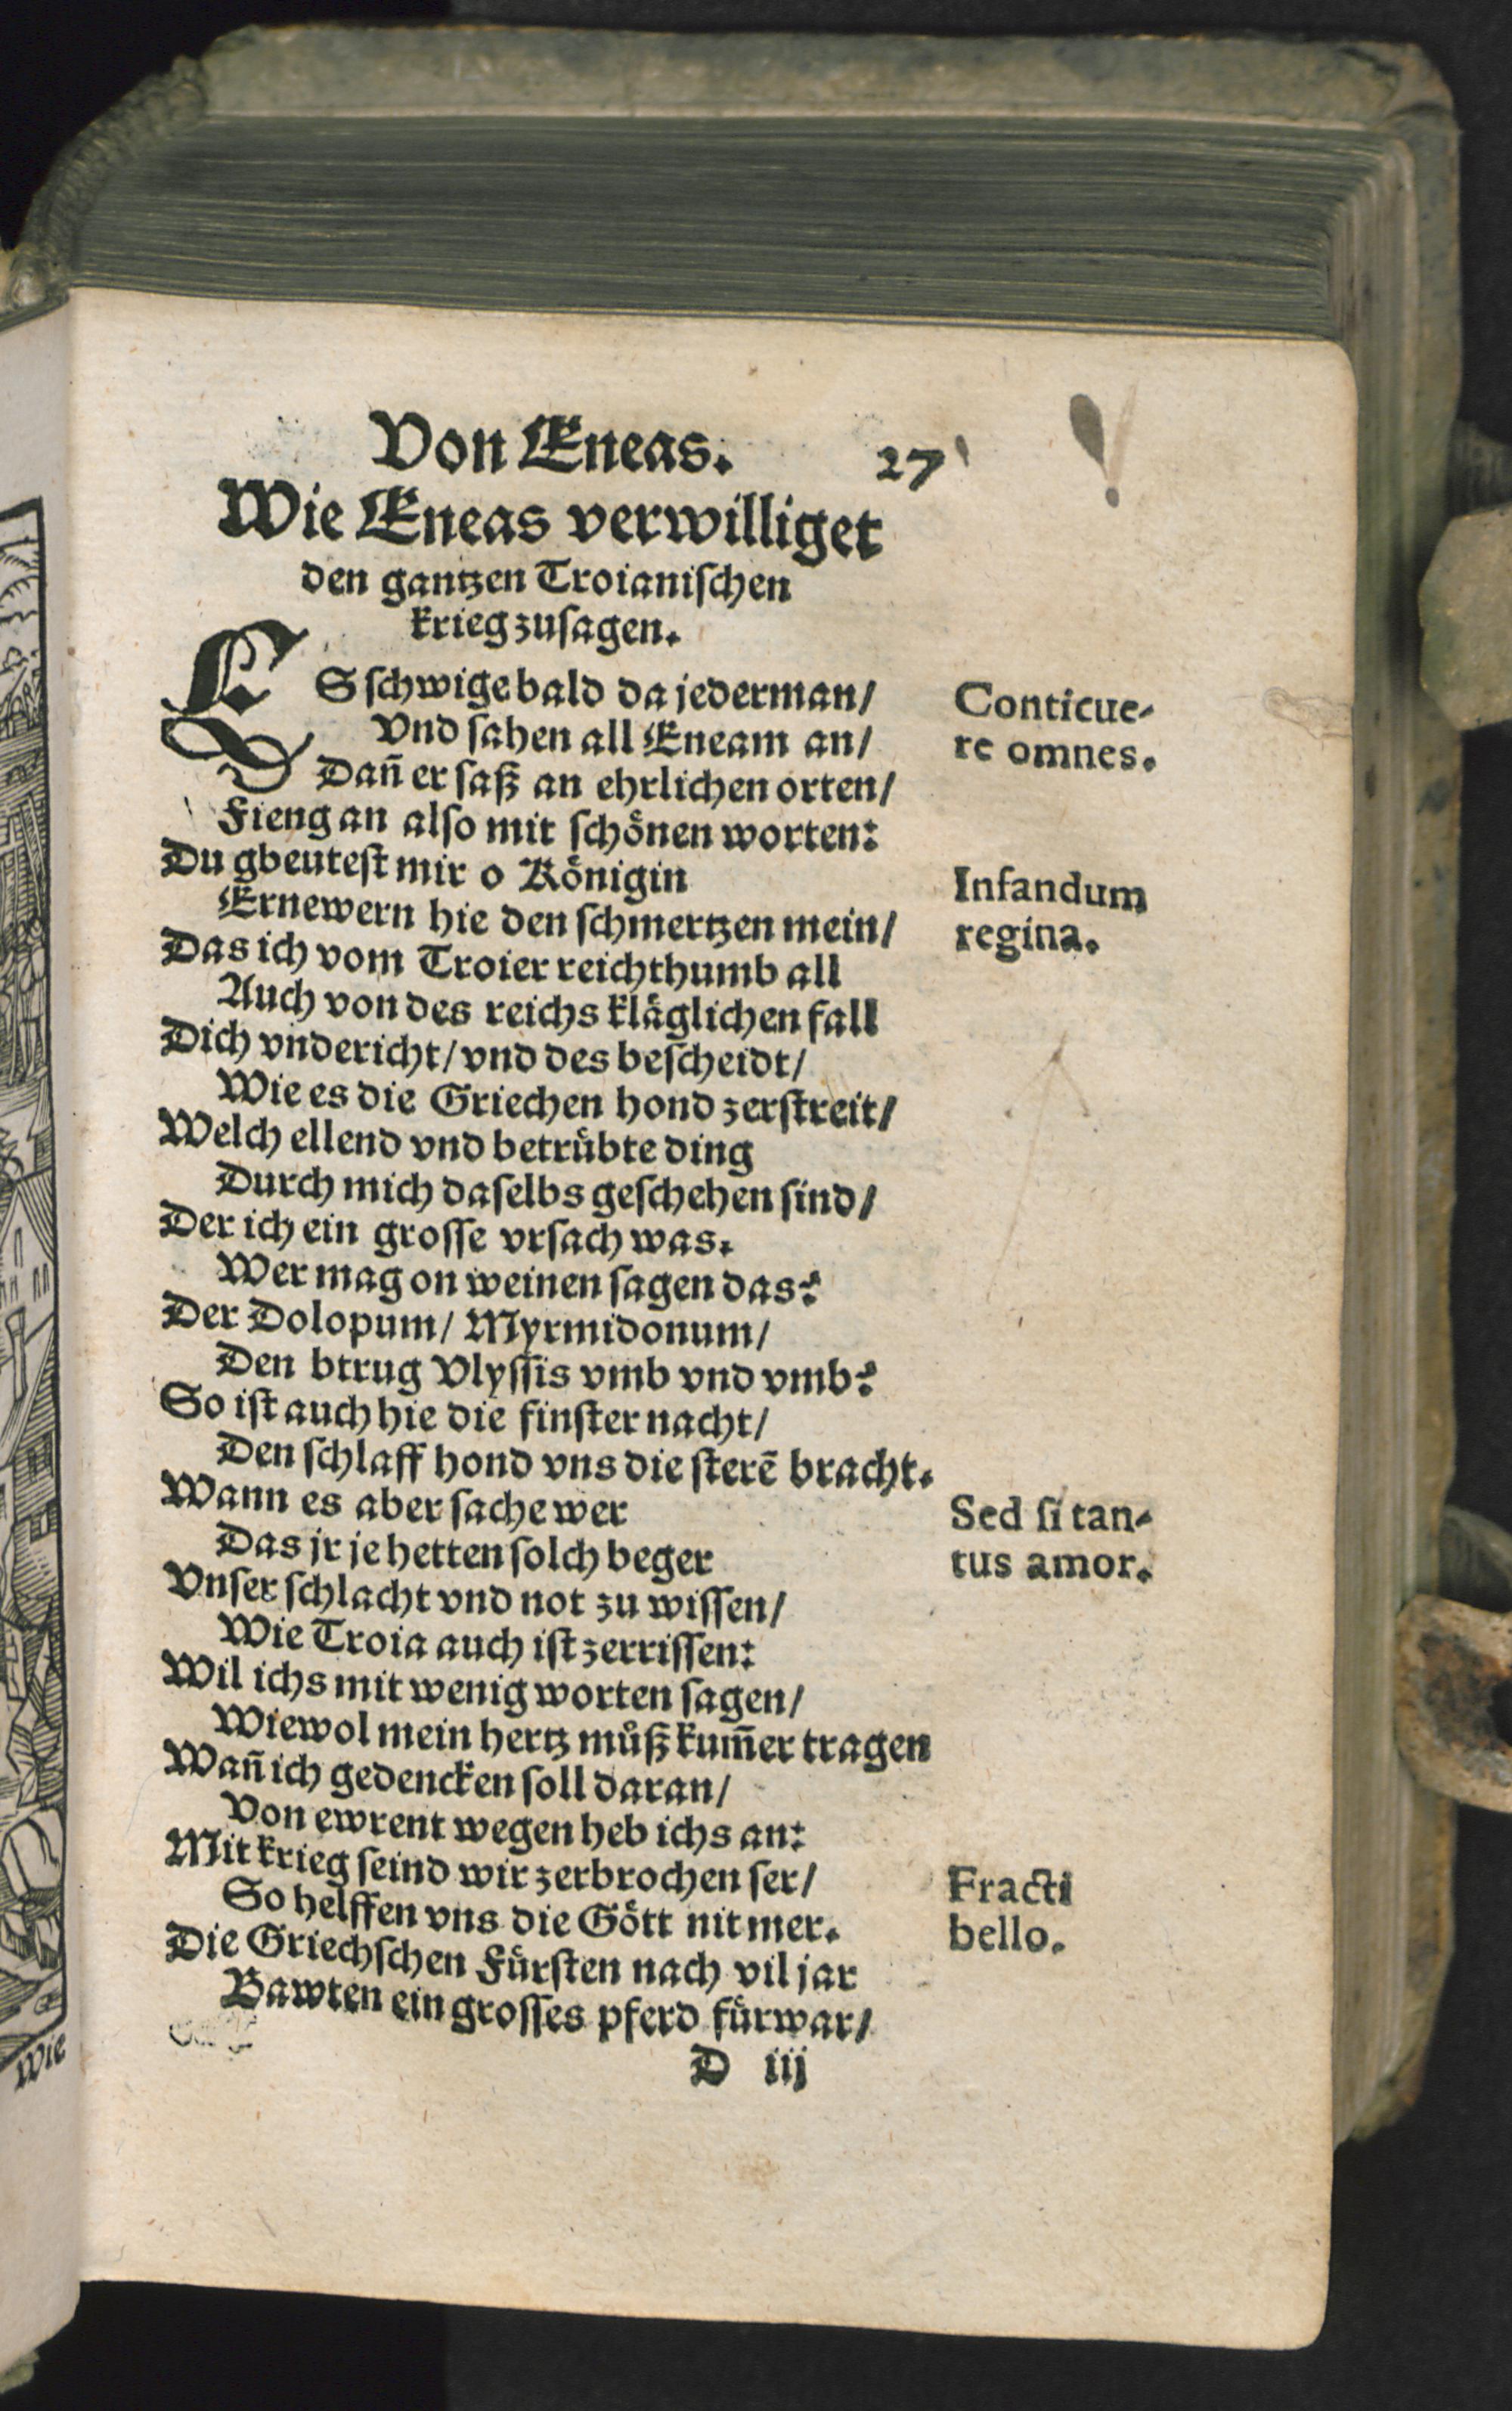 Von Eneas. 27
Wie Eneas verwilliget
den gantzen Troianischen
krieg zusagen.
ES schwige bald da jederman/
Vnd sahen all Eneam an/
Dañ er saß an ehrlichen orten/
Fieng an also mit schönen worten:
Du gbeutest mir o Königin
Ernewern hie den schmertzen mein/
Das ich vom Troier reichthumb all
Auch von des reichs kläglichen fall
Dich vndericht/ vnd des bescheidt/
Wie es die Griechen hond zerstreit/
Welch ellend vnd betrübte ding
Durch mich daselbs geschehen sind/
Der ich ein grosse vrsach was.
Wer mag on weinen sagen das?
Der Dolopum/ Myrmidonum/
Den btrug Vlyssis vmb vnd vmb?
So ist auch hie die finster nacht/
Den schlaff hond vns die sterē bracht.
Wann es aber sache wer
Das jr je hetten solch beger
Vnser schlacht vnd not zu wissen/
Wie Troia auch ist zerrissen:
Wil ichs mit wenig worten sagen/
Wiewol mein hertz můß kum̄er tragen
Wañ ich gedencken soll daran/
Von ewrent wegen heb ichs an:
Mit krieg seind wir zerbrochen ser/
So helffen vns die Gött nit mer.
Die Griechschen Fürsten nach vil jar
Bawten ein grosses pferd fürwar/
D iij
Conticue-
re omnes.
Infandum
regina.
Sed si tan-
tus amor.
Fracti
bello.
Wie